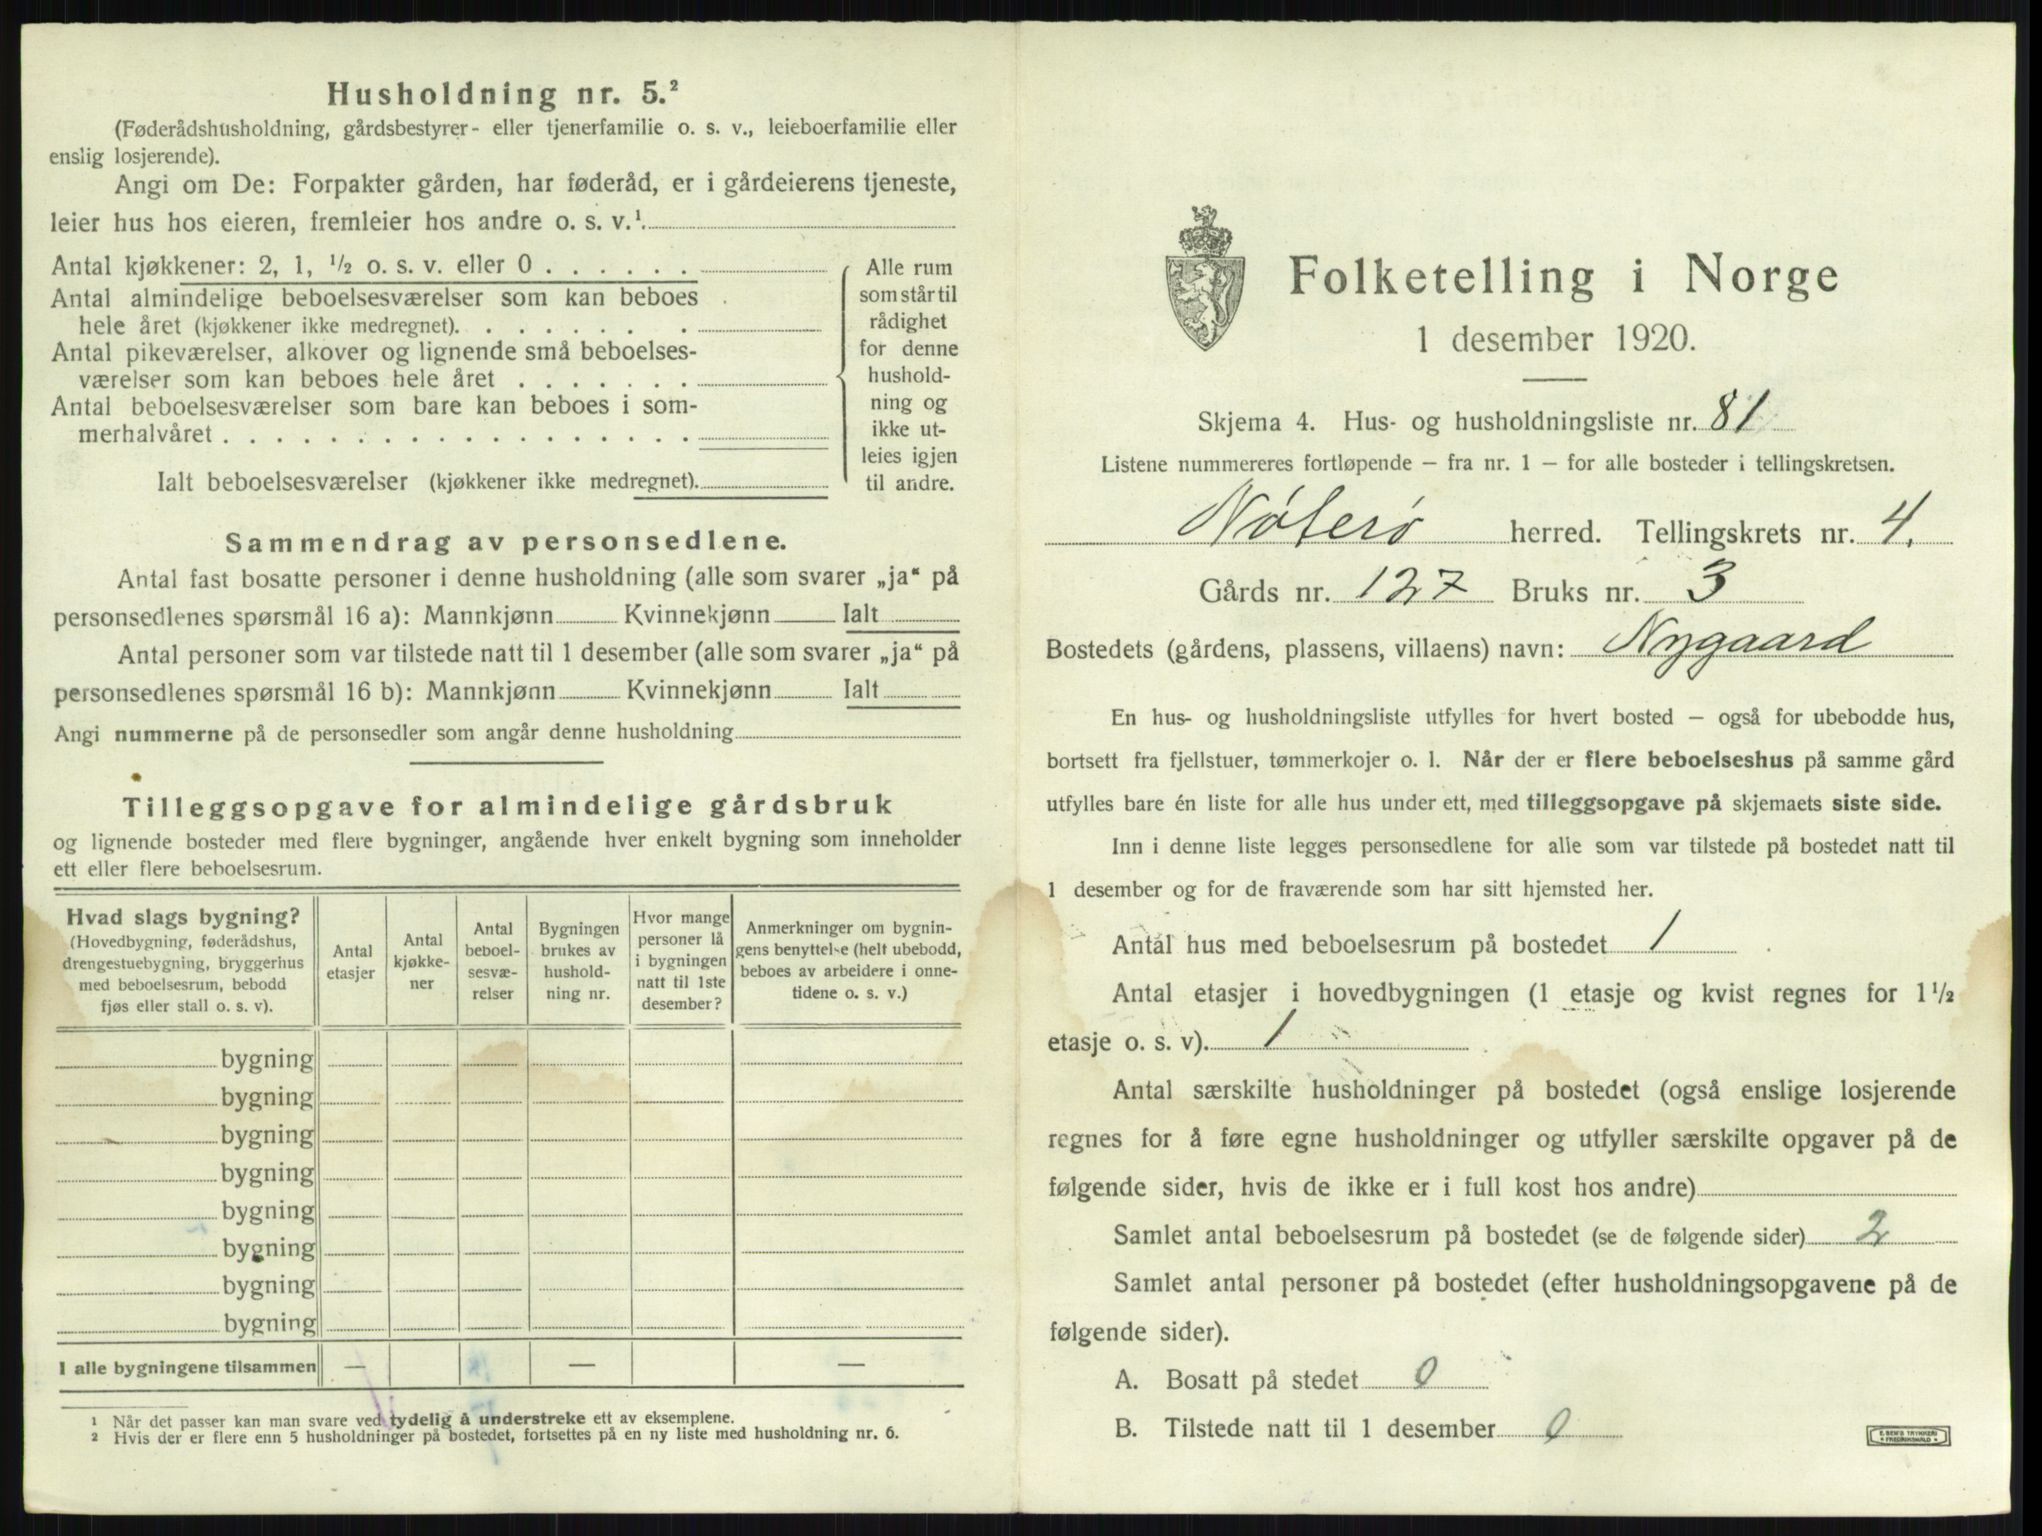 Husholdning nr. 5.²
(Føderådshusholdning, gårdsbestyrer- eller tjenerfamilie o. s. v., leieboerfamilie eller
enslig losjerende).
Angi om De: Forpakter gården, har føderåd, er i gårdeierens tjeneste,
leier hus hos eieren, fremleier hos andre o. s. v.¹.
Antal kjøkkener: 2, 1, ½ o. s. v. eller 0 . . . . . .
Antal almindelige beboelsesværelser som kan beboes
hele året (kjøkkener ikke medregnet). . . . . . . .
Antal pikeværelser, alkover og lignende små beboelses-
værelser som kan beboes hele året . . . . . . .
Antal beboelsesværelser som bare kan beboes i som-
merhalvåret . . . . . . . . . . . . . . . . . .
Ialt beboelsesværelser (kjøkkener ikke medregnet).
Alle rum
som står til
rådighet
for denne
hushold-
ning og
ikke ut-
leies igjen
til andre.
Sammendrag av personsedlene.
Antal fast bosatte personer i denne husholdning (alle som svarer „ja“ på
personsedlenes spørsmål 16 a): Mannkjønn Kvinnekjønn Ialt
Antal personer som var tilstede natt til 1 desember (alle som svarer „ja“ på
personsedlenes spørsmål 16 b): Mannkjønn Kvinnekjønn Ialt
Angi nummerne på de personsedler som angår denne husholdning
Tilleggsopgave for almindelige gårdsbruk
og lignende bosteder med flere bygninger, angående hver enkelt bygning som inneholder
ett eller flere beboelsesrum.
Hvad slags bygning?
(Hovedbygning, føderådshus,
drengestuebygning, bryggerhus
med beboelsesrum, bebodd
fjøs eller stall o. s. v).
Antal
etasjer
Antal
kjøkke-
ner
Antal
beboel-
sesvæ-
relser
Bygningen
brukes av
hushold-
ning nr.
Hvor mange
personer lå
i bygningen
natt til 1ste
desember?
Anmerkninger om bygnin-
gens benyttelse (helt ubebodd,
beboes av arbeidere i onne-
tidene o. s. v.)
bygning
bygning
bygning
bygning
bygning
bygning
bygning
bygning
I alle bygningene tilsammen — — —
¹ Når det passer kan man svare ved tydelig å understreke ett av eksemplene.
² Hvis der er flere enn 5 husholdninger på bostedet, fortsettes på en ny liste med husholdning nr. 6.
Folketelling i Norge
1 desember 1920.
Skjema 4. Hus- og husholdningsliste nr. 81
Listene nummereres fortløpende – fra nr. 1 – for alle bosteder i tellingskretsen.
Nøterø herred. Tellingskrets nr. 4.
Gårds nr. 127 Bruks nr. 3
Bostedets (gårdens, plassens, villaens) navn: Nygaard
En hus- og husholdningsliste utfylles for hvert bosted – også for ubebodde hus,
bortsett fra fjellstuer, tømmerkojer o. l. Når der er flere beboelseshus på samme gård
utfylles bare én liste for alle hus under ett, med tilleggsopgave på skjemaets siste side.
Inn i denne liste legges personsedlene for alle som var tilstede på bostedet natt til
1 desember og for de fraværende som har sitt hjemsted her.
Antal hus med beboelsesrum på bostedet 1
Antal etasjer i hovedbygningen (1 etasje og kvist regnes for 1½
etasje o. s. v). 1
Antal særskilte husholdninger på bostedet (også enslige losjerende
regnes for å føre egne husholdninger og utfyller særskilte opgaver på de
følgende sider, hvis de ikke er i full kost hos andre)
Samlet antal beboelsesrum på bostedet (se de følgende sider) 2
Samlet antal personer på bostedet (efter husholdningsopgavene på de
følgende sider).
A. Bosatt på stedet 0
B. Tilstede natt til 1 desember 0